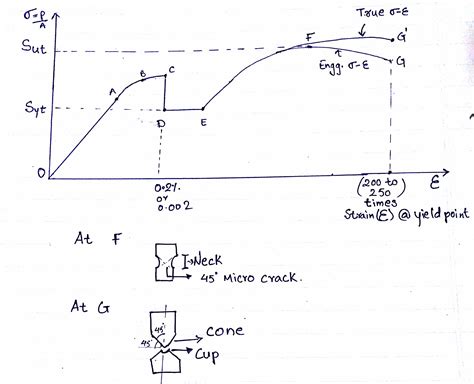 σ=P/A
True σ-ε
Sut
F
G'
Engg. σ-ε
G
A
B
C
Syt
D
E
0
0.2%
or
0.002
(200 to
250)
times
Strain(ε) @ yield point
ε
At F
Neck
45° Micro crack.
At G
45°
45°
cone
Cup